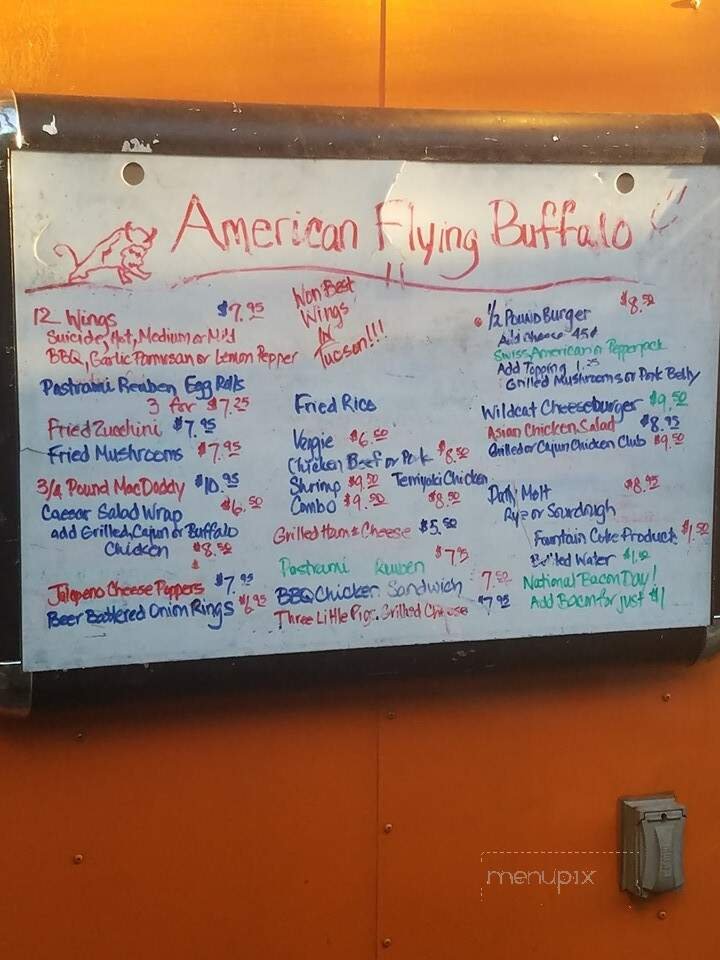 American Flying Buffalo
12 Wings $7.95
Suicide, Hot, Medium or Mild
BBQ, Garlic Parmesan or Lemon Pepper
Won Best
Wings
IN
Tucson!!!
Pastrami Reuben Egg Rolls
3 for $7.25
Fried Zucchini $7.95
Fried Mushrooms $7.95
3/4 Pound MacDaddy $10.95
Caesar Salad Wrap $6.50
add Grilled, Cajun or Buffalo
Chicken $8.50
Jalapeno Cheese Poppers $7.95
Beer Battered Onion Rings $6.95
Fried Rice
Veggie $6.50
Chicken Beef or Pork $8.50
Shrimp $9.50 Terriyaki Chicken
Combo $9.50 $8.50
Grilled Ham & Cheese $5.50
Pastrami Reuben $7.95
BBQ Chicken Sandwich 7.50
Three Little Pigs Grilled Cheese $7.95
1/2 Pound Burger $8.50
Add cheese 45¢
Swiss, American or Pepperjack
Add Topping 1.25
Grilled Mushrooms or Pork Belly
Wildcat Cheeseburger $9.50
Asian Chicken Salad $8.95
Grilled or Cajun Chicken Club $9.50
Patty Melt $8.95
Rye or Sourdough
Fountain Coke Product $1.50
Bottled Water
National Bacon Day!
Add Bacon for just $1
menupix